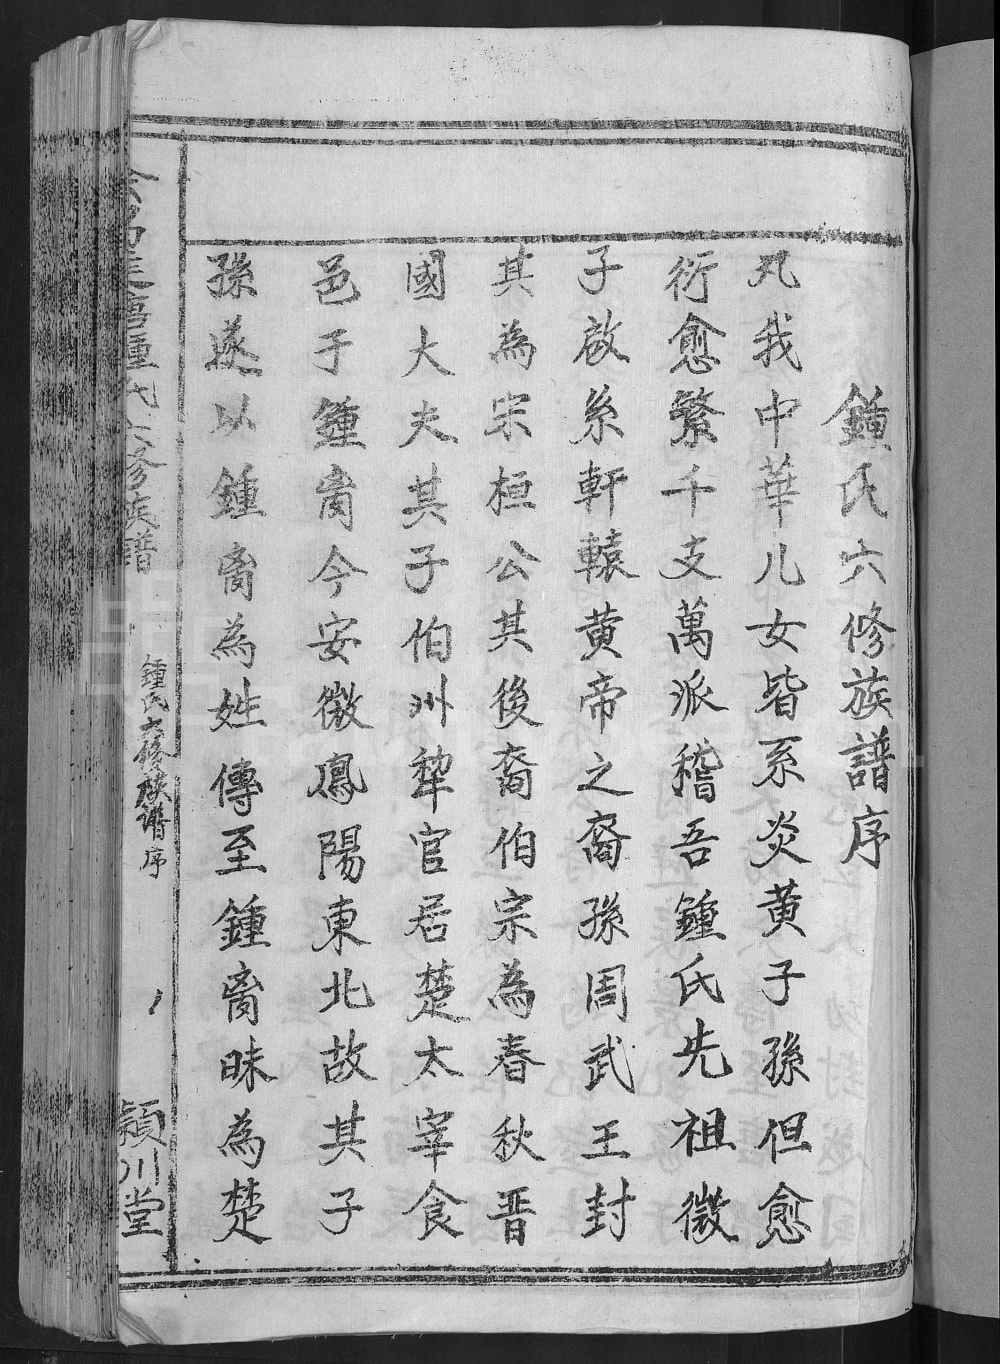 鍾氏六修族譜序
凡我中華儿女皆系炎黄子孫但愈
衍愈繁千支萬派稽吾鍾氏先祖微
子啟系軒轅黄帝之裔孫周武王封
其為宋桓公其後裔伯宗為春秋晋
國大夫其子伯州犂官居楚太宰食
邑子鍾啇今安徽鳯陽東北故其子
孫遂以鍾啇為姓傳至鍾啇昧為楚
鍾氏六修族譜
鍾氏六修族譜序
潁川堂